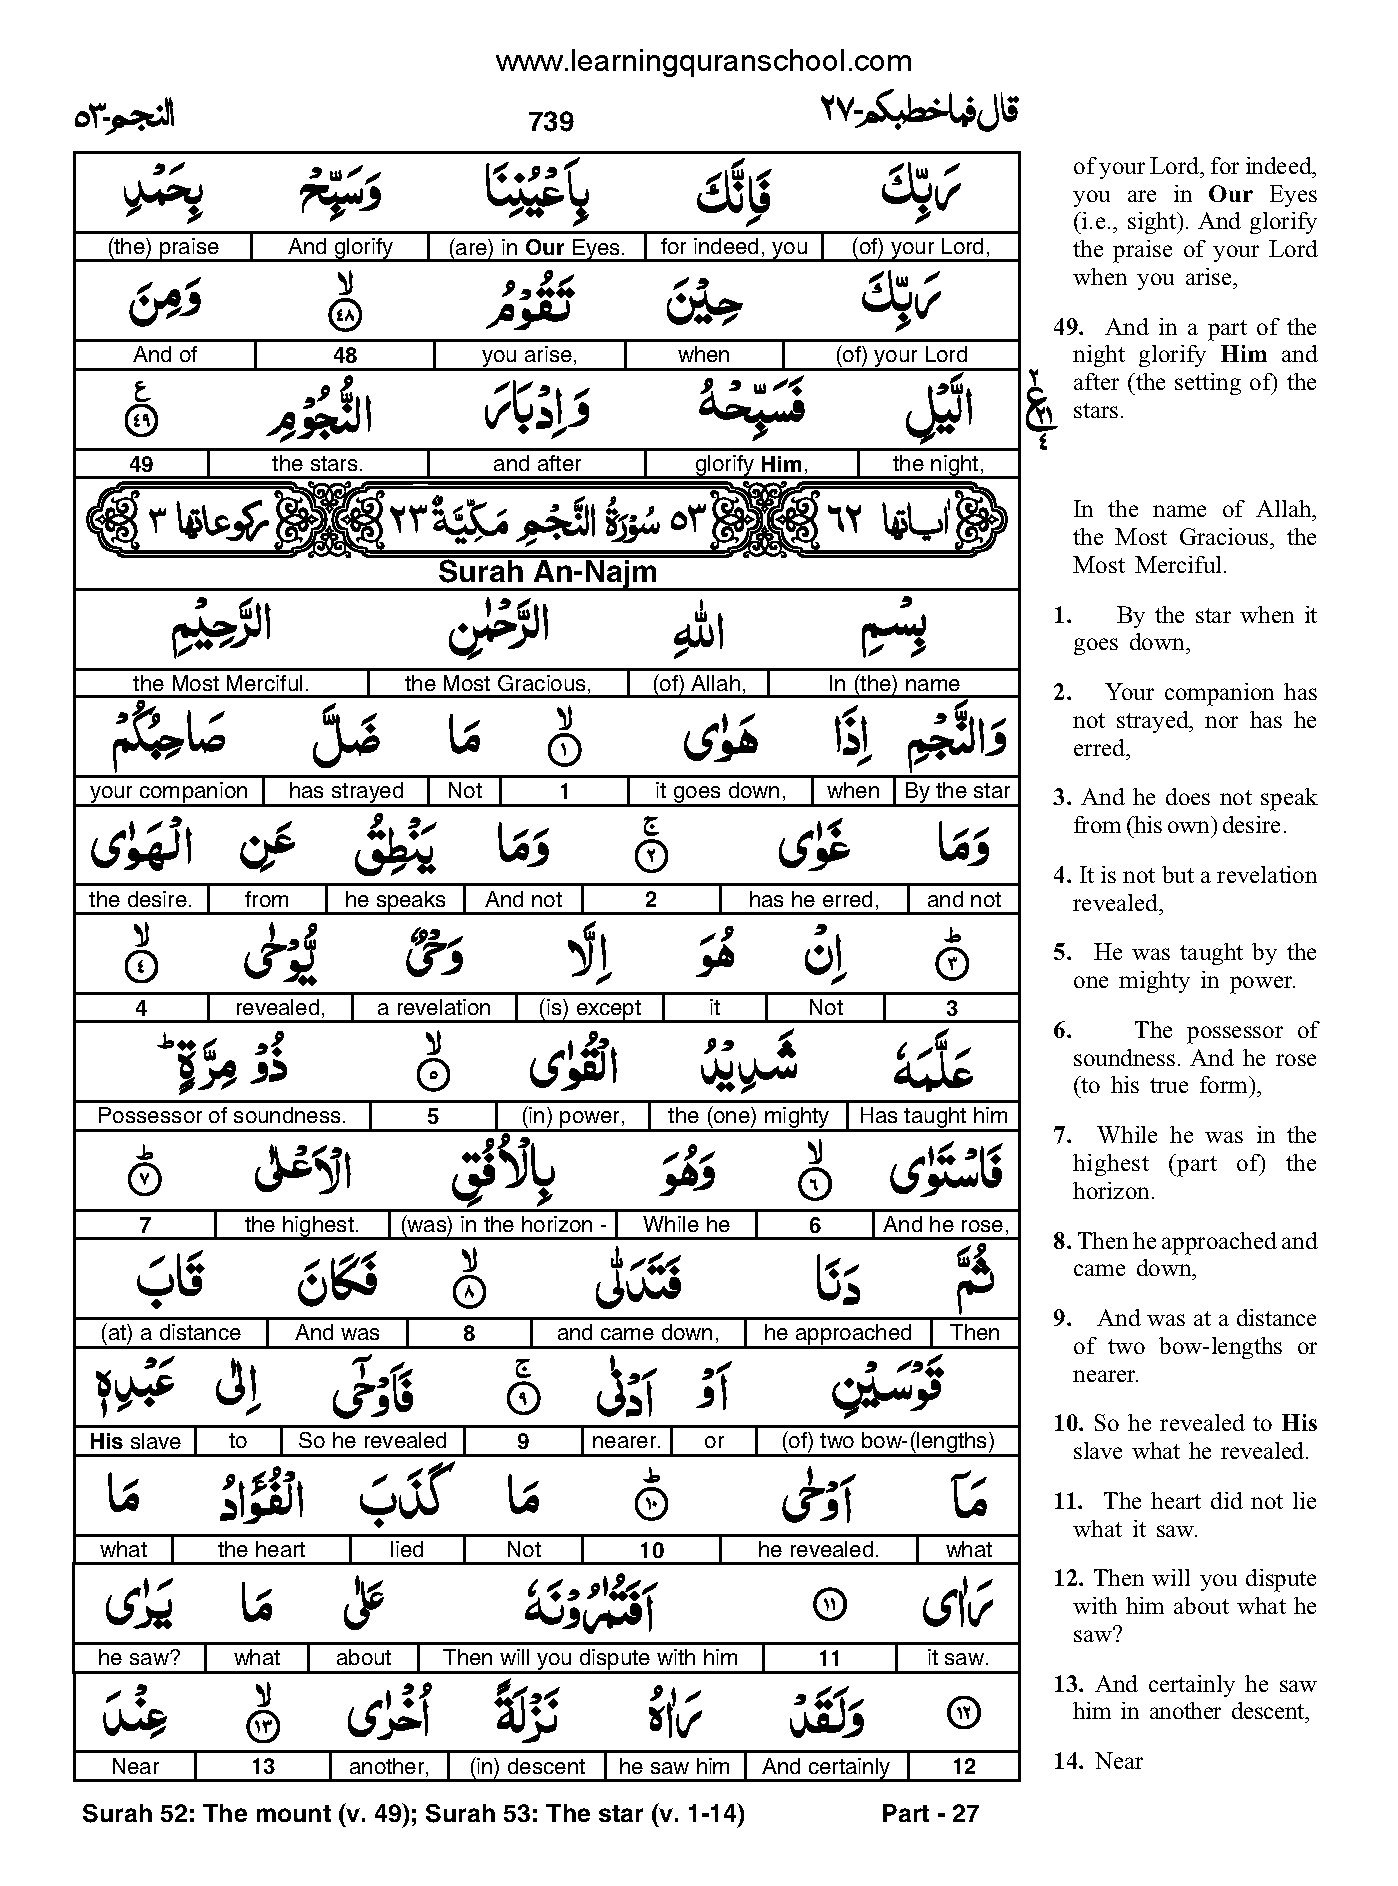 www.learningquranschool.com
قال فماخطبكم-٢٧ 739 النجم-٥٣
رَبِّكَ فَاِنَّكَ بِاَعْيُنِنَا وَسَبِّحْ بِحَمْدِ
(of) your Lord, for indeed, you (are) in Our Eyes. And glorify (the) praise
رَبِّكَ حِيْنَ تَقُوْمُ ۙ ٤٨ وَمِنَ
(of) your Lord when you arise, 48 And of
الَّيْلِ فَسَبِّحْهُ وَاِدْبَارَ النُّجُوْمِ ع ٤٩
the night, glorify Him, and after the stars. 49
اٰياتها ٦٢ ٥٣ سُوْرَةُ النَّجْمِ مَكِّيَّةٌ ٢٣ ركوعاتها ٣
Surah An-Najm
بِسْمِ اللّٰهِ الرَّحْمٰنِ الرَّحِيْمِ
In (the) name (of) Allah, the Most Gracious, the Most Merciful.
وَالنَّجْمِ اِذَا هَوٰى ۙ ١ مَا ضَلَّ صَاحِبُكُمْ
By the star when it goes down, 1 Not has strayed your companion
وَمَا غَوٰى ۚ ٢ وَمَا يَنْطِقُ عَنِ الْهَوٰى
and not has he erred, 2 And not he speaks from the desire.
ؕ ٣ اِنْ هُوَ اِلَّا وَحْيٌ يُّوْحٰى ۙ ٤
3 Not it (is) except a revelation revealed, 4
عَلَّمَهٗ شَدِيْدُ الْقُوٰى ۙ ٥ ذُوْ مِرَّةٍ ؕ
Has taught him the (one) mighty (in) power, 5 Possessor of soundness.
فَاسْتَوٰى ۙ ٦ وَهُوَ بِالْاُفُقِ الْاَعْلٰى ؕ ٧
And he rose, 6 While he (was) in the horizon - the highest. 7
ثُمَّ دَنَا فَتَدَلّٰى ۙ ٨ فَكَانَ قَابَ
Then he approached and came down, 8 And was (at) a distance
قَوْسَيْنِ اَوْ اَدْنٰى ۚ ٩ فَاَوْحٰٓى اِلٰى عَبْدِهٖ
(of) two bow-(lengths) or nearer. 9 So he revealed to His slave
مَآ اَوْحٰى ؕ ١٠ مَا كَذَبَ الْفُؤَادُ مَا
what he revealed. 10 Not lied the heart what
رَاٰى ١١ اَفَتُمٰرُوْنَهٗ عَلٰى مَا يَرٰى
it saw. 11 Then will you dispute with him about what he saw?
١٢ وَلَقَدْ رَاٰهُ نَزْلَةً اُخْرٰى ۙ ١٣ عِنْدَ
12 And certainly he saw him (in) descent another, 13 Near
of your Lord, for indeed,
you are in Our Eyes
(i.e., sight). And glorify
the praise of your Lord
when you arise,
49. And in a part of the
night glorify Him and
after (the setting of) the
stars.
٢
ع
٢١
٤
In the name of Allah,
the Most Gracious, the
Most Merciful.
1. By the star when it
goes down,
2. Your companion has
not strayed, nor has he
erred,
3. And he does not speak
from (his own) desire.
4. It is not but a revelation
revealed,
5. He was taught by the
one mighty in power.
6. The possessor of
soundness. And he rose
(to his true form),
7. While he was in the
highest (part of) the
horizon.
8. Then he approached and
came down,
9. And was at a distance
of two bow-lengths or
nearer.
10. So he revealed to His
slave what he revealed.
11. The heart did not lie
what it saw.
12. Then will you dispute
with him about what he
saw?
13. And certainly he saw
him in another descent,
14. Near
Surah 52: The mount (v. 49); Surah 53: The star (v. 1-14) Part - 27